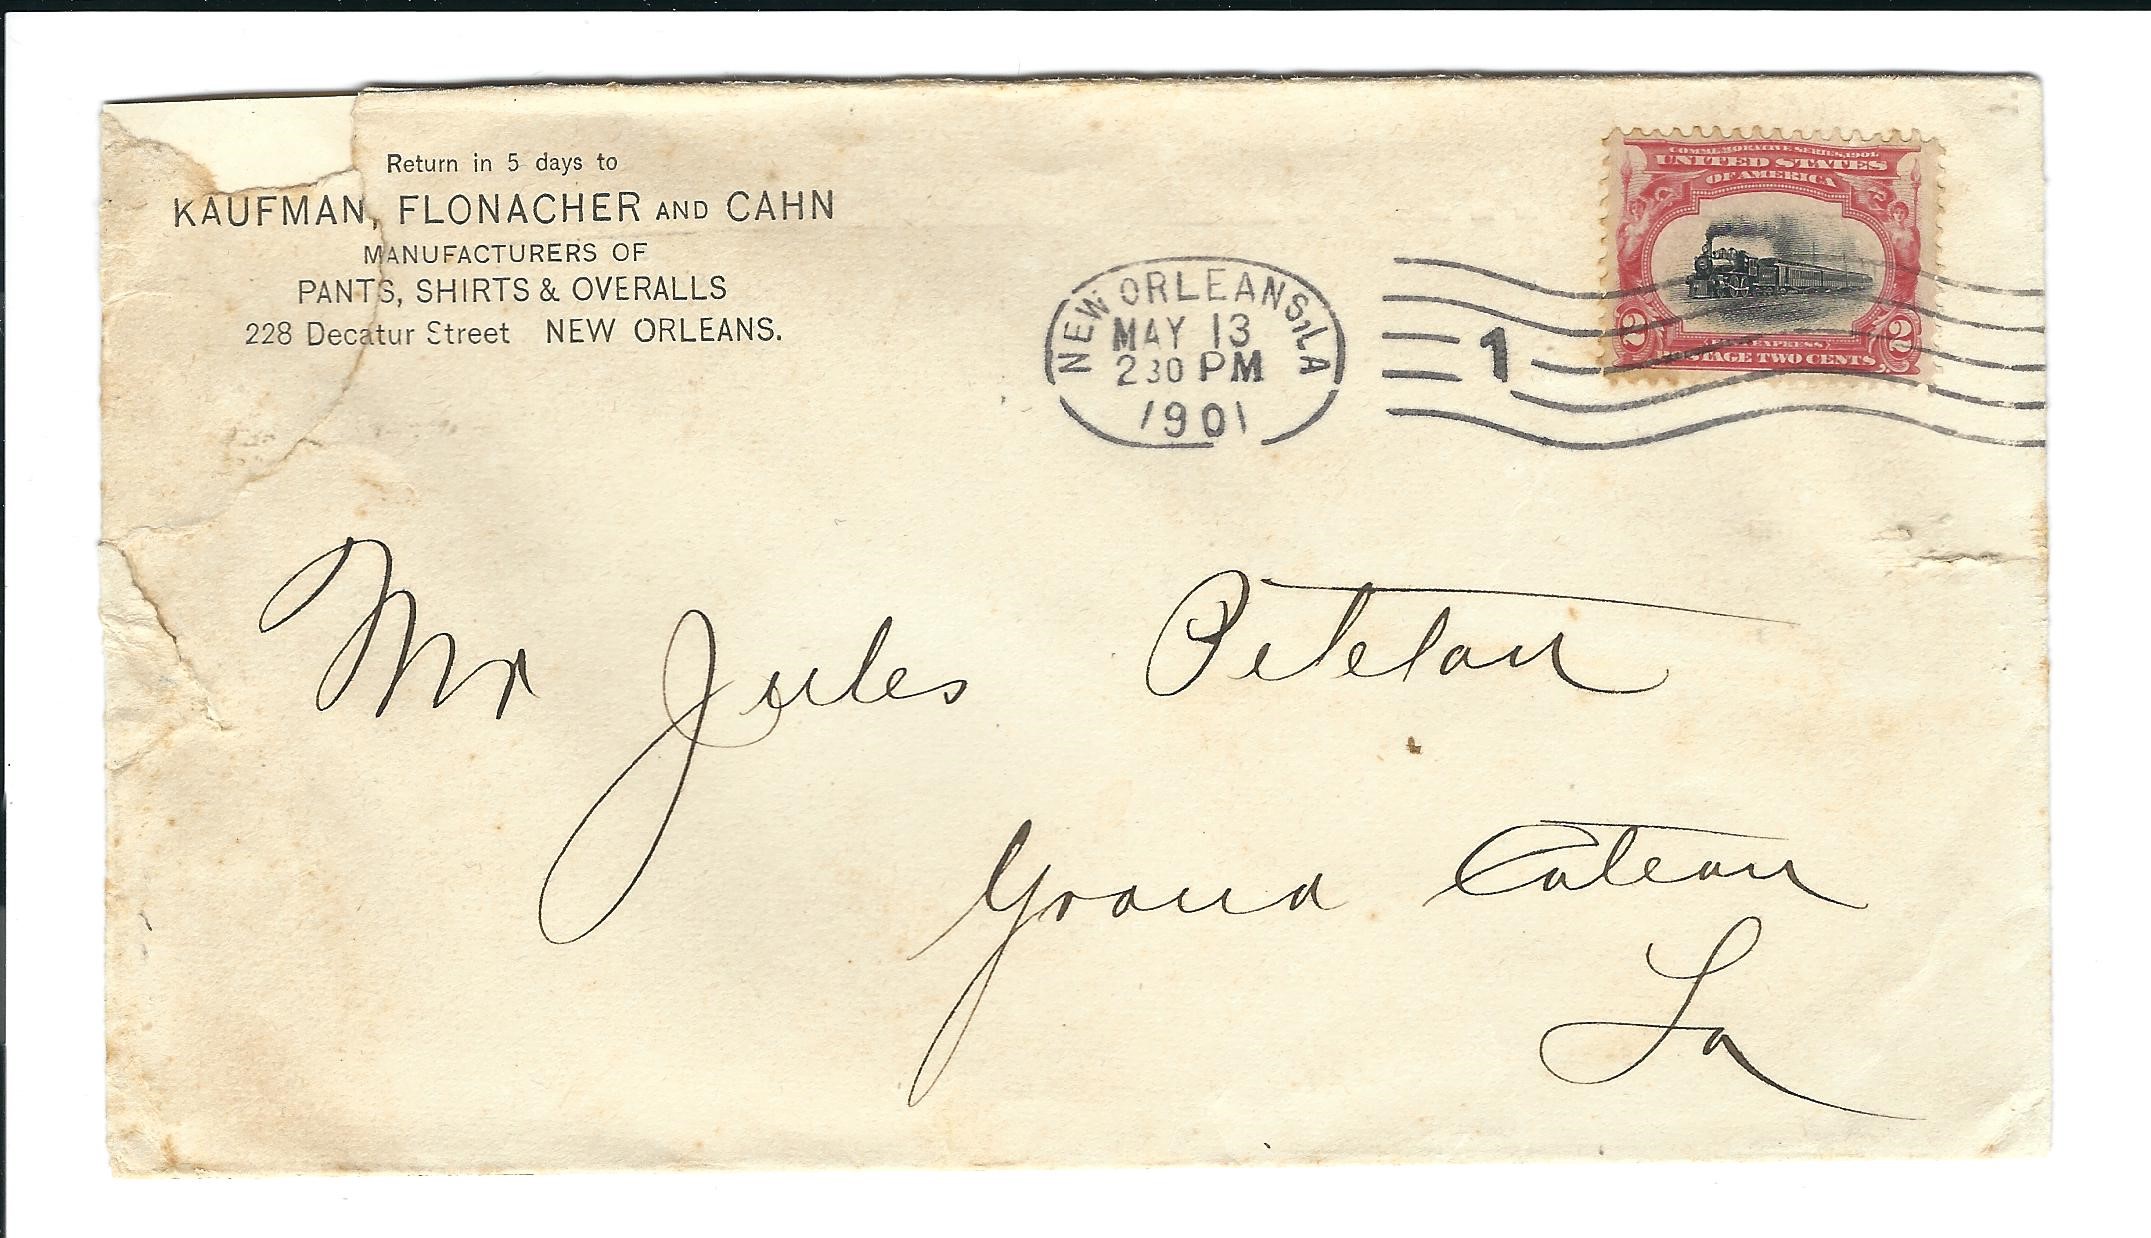 Return in 5 days to
KAUFMAN, FLONACHER AND CAHN
MANUFACTURERS OF
PANTS, SHIRTS & OVERALLS
228 Decatur Street NEW ORLEANS.
NEW ORLEANS, LA
MAY 13
2 30 PM
1901
1
COMMEMORATIVE SERIES, 1901
UNITED STATES
OF AMERICA
2 2
EXPRESS
POSTAGE TWO CENTS
Mr Jules Petetan
Grand Coteau
La